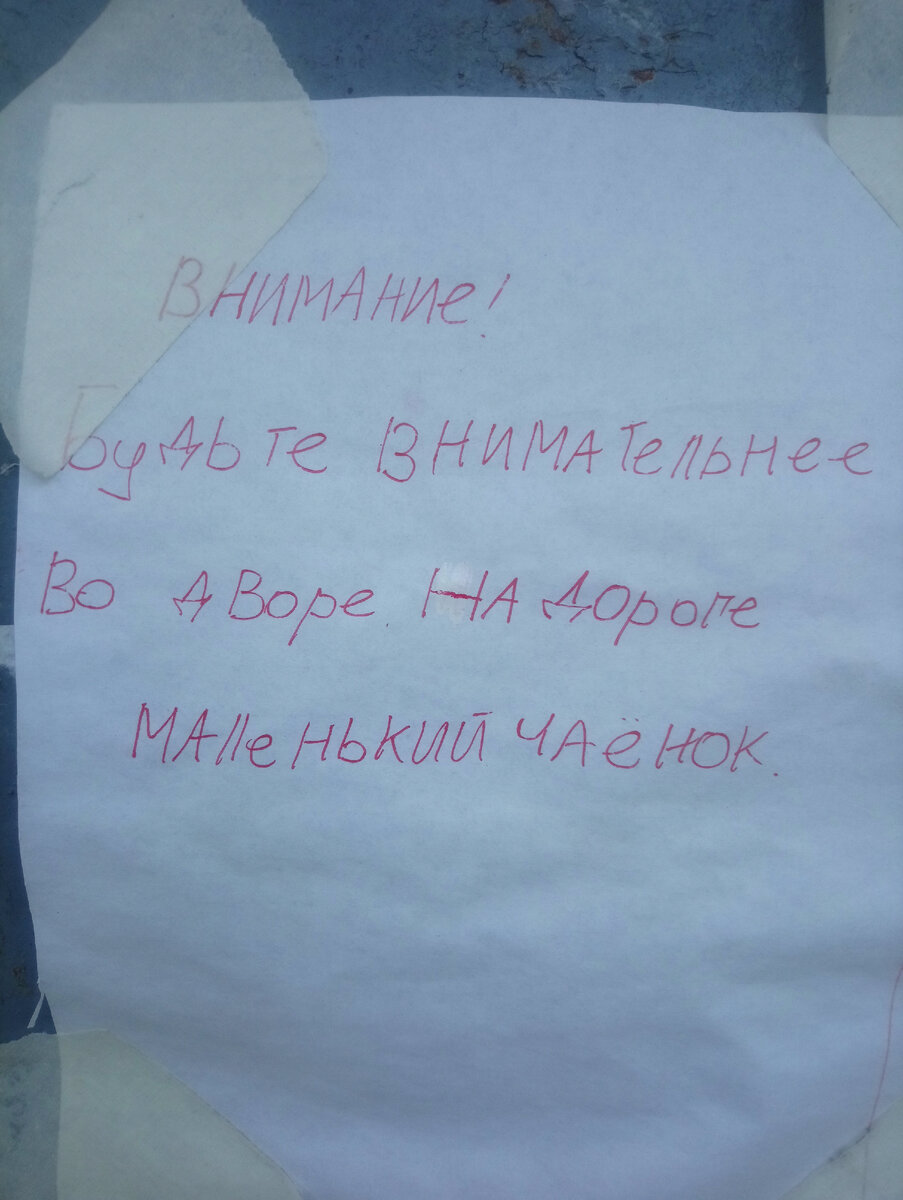 ВНИМАНИе!
Будьте ВНИМАТельНее
Во дВоре НА дороге
МАлеНЬКИЙ ЧАёНОК.